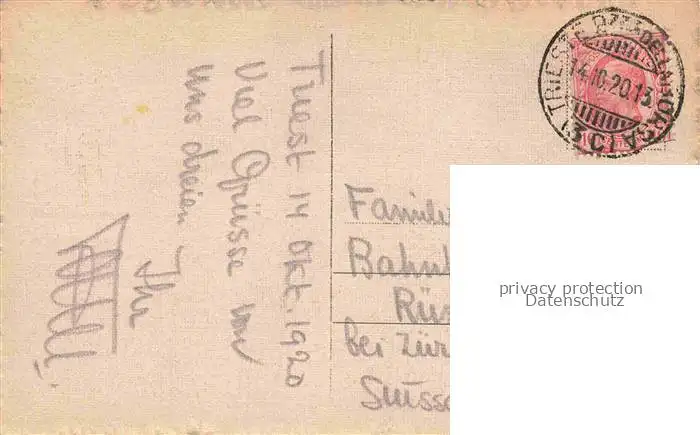 Triest 14 Okt. 1920
Viel Grüsse von
uns dreien
Ihr
TRIESTE
14.10.20.13
Familie
bei Zür
Suisse
privacy protection
Datenschutz